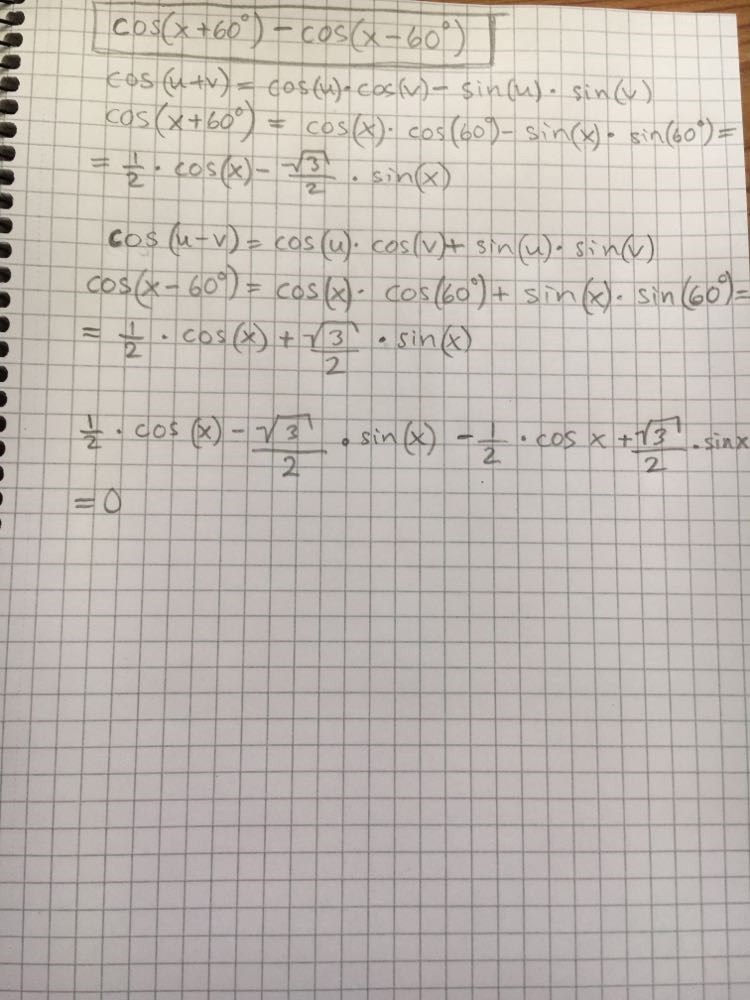 cos(x+60°) − cos(x−60°)
cos(u+v) = cos(u)·cos(v) − sin(u)·sin(v)
cos(x+60°) = cos(x)·cos(60°) − sin(x)·sin(60°) =
= 1/2 · cos(x) − √3/2 · sin(x)
cos(u−v) = cos(u)·cos(v) + sin(u)·sin(v)
cos(x−60°) = cos(x)·cos(60°) + sin(x)·sin(60°) =
= 1/2 · cos(x) + √3/2 · sin(x)
1/2 · cos(x) − √3/2 · sin(x) − 1/2 · cos x + √3/2 · sin x
= 0